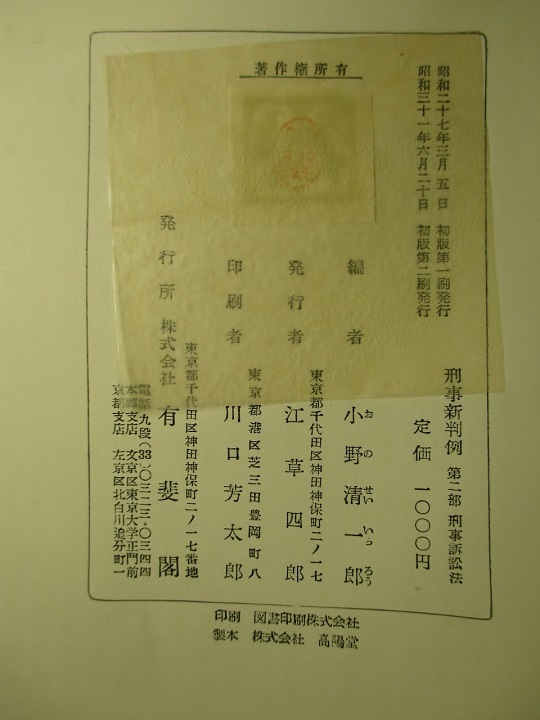 著作権所有
昭和二十七年三月五日　初版第一刷発行
昭和三十一年六月二十日　初版第二刷発行
刑事新判例　第二部　刑事訴訟法
定価　一〇〇〇円
編者　小野清一郎
おのせいいちろう
東京都千代田区神田神保町二ノ一七
発行者　江草四郎
東京都港区芝三田豊岡町八
印刷者　川口芳太郎
東京都千代田区神田神保町二ノ一七番地
発行所　株式会社　有斐閣
電話九段(33)〇三二三・〇三四四
本郷支店　文京区東京大学正門前
京都支店　左京区北白川追分町一
印刷　図書印刷株式会社
製本　株式会社　高陽堂